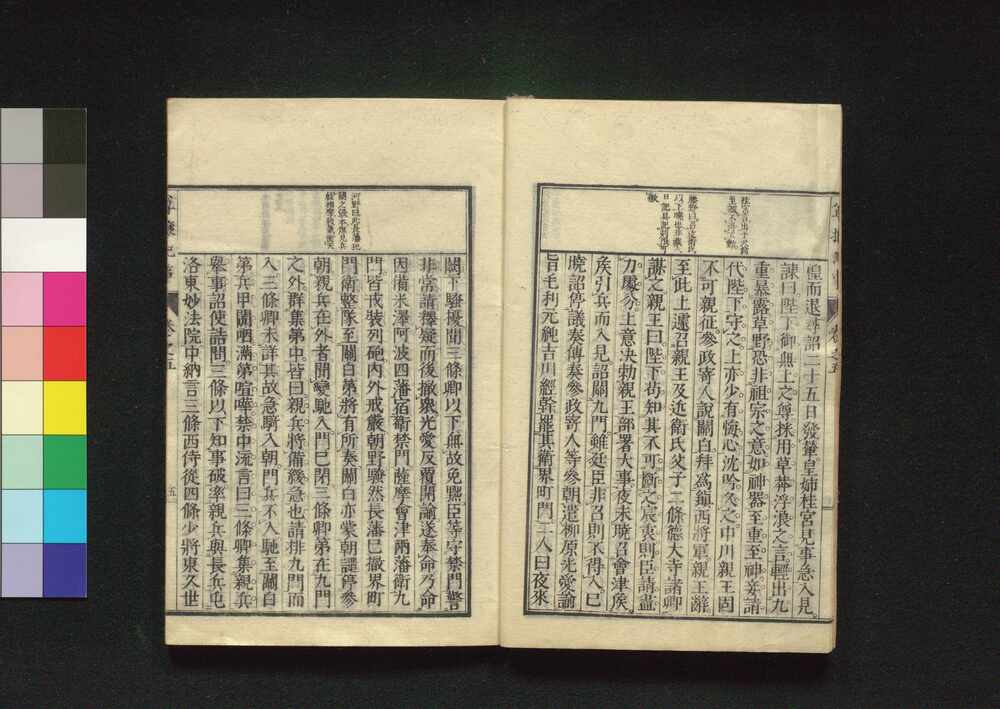 惶而退尋詔二十五日發輦皇姉桂宮見事急入見
諫曰陛下御無上之尊採用草莽浮浪之言輕出九
重暴露草野恐非祖宗之意如神器至重至神妾請
代陛下守之上亦少有悔心沈吟久之中川親王固
不可親征參政寄人說關白拜爲鎭西將軍親王辭
至此上遽召親王及近衛氏父子二條德大寺諸卿
謀之親王曰陛下苟知其不可斷之宸衷則臣請盡
力處分上意决勅親王部署大事夜未曉召會津侯
侯引兵而入見詔關九門雖廷臣非召則不得入巳
曉詔停議奏傳奏參政寄人等參朝遣柳原光愛諭
旨毛利元純吉川經幹罷其衛界町門二人曰夜來
闕下騷擾聞三條卿以下無故免黜臣等守禁門警
非常請釋疑而後撤衆光愛反覆開諭遂奉命乃命
因備米澤阿波四藩宿衛禁門薩摩會津兩藩衛九
門皆戎裝列砲內外戒嚴朝野騷然長藩已撤界町
門衛整隊至關白第將有所奏關白亦蒙朝譴停參
朝親兵在外者聞變馳入門已閉三條卿第在九門
之外群集第中皆曰親兵將備緩急也請排九門而
入三條卿未詳其故急騎入朝門兵不入馳至關白
第兵甲闐咽滿第喧嘩禁中流言曰三條卿集親兵
擧事詔使詰問三條以下知事破率親兵與長兵屯
洛東妙法院中納言三條西侍從四條少將東久世
卷之五
五